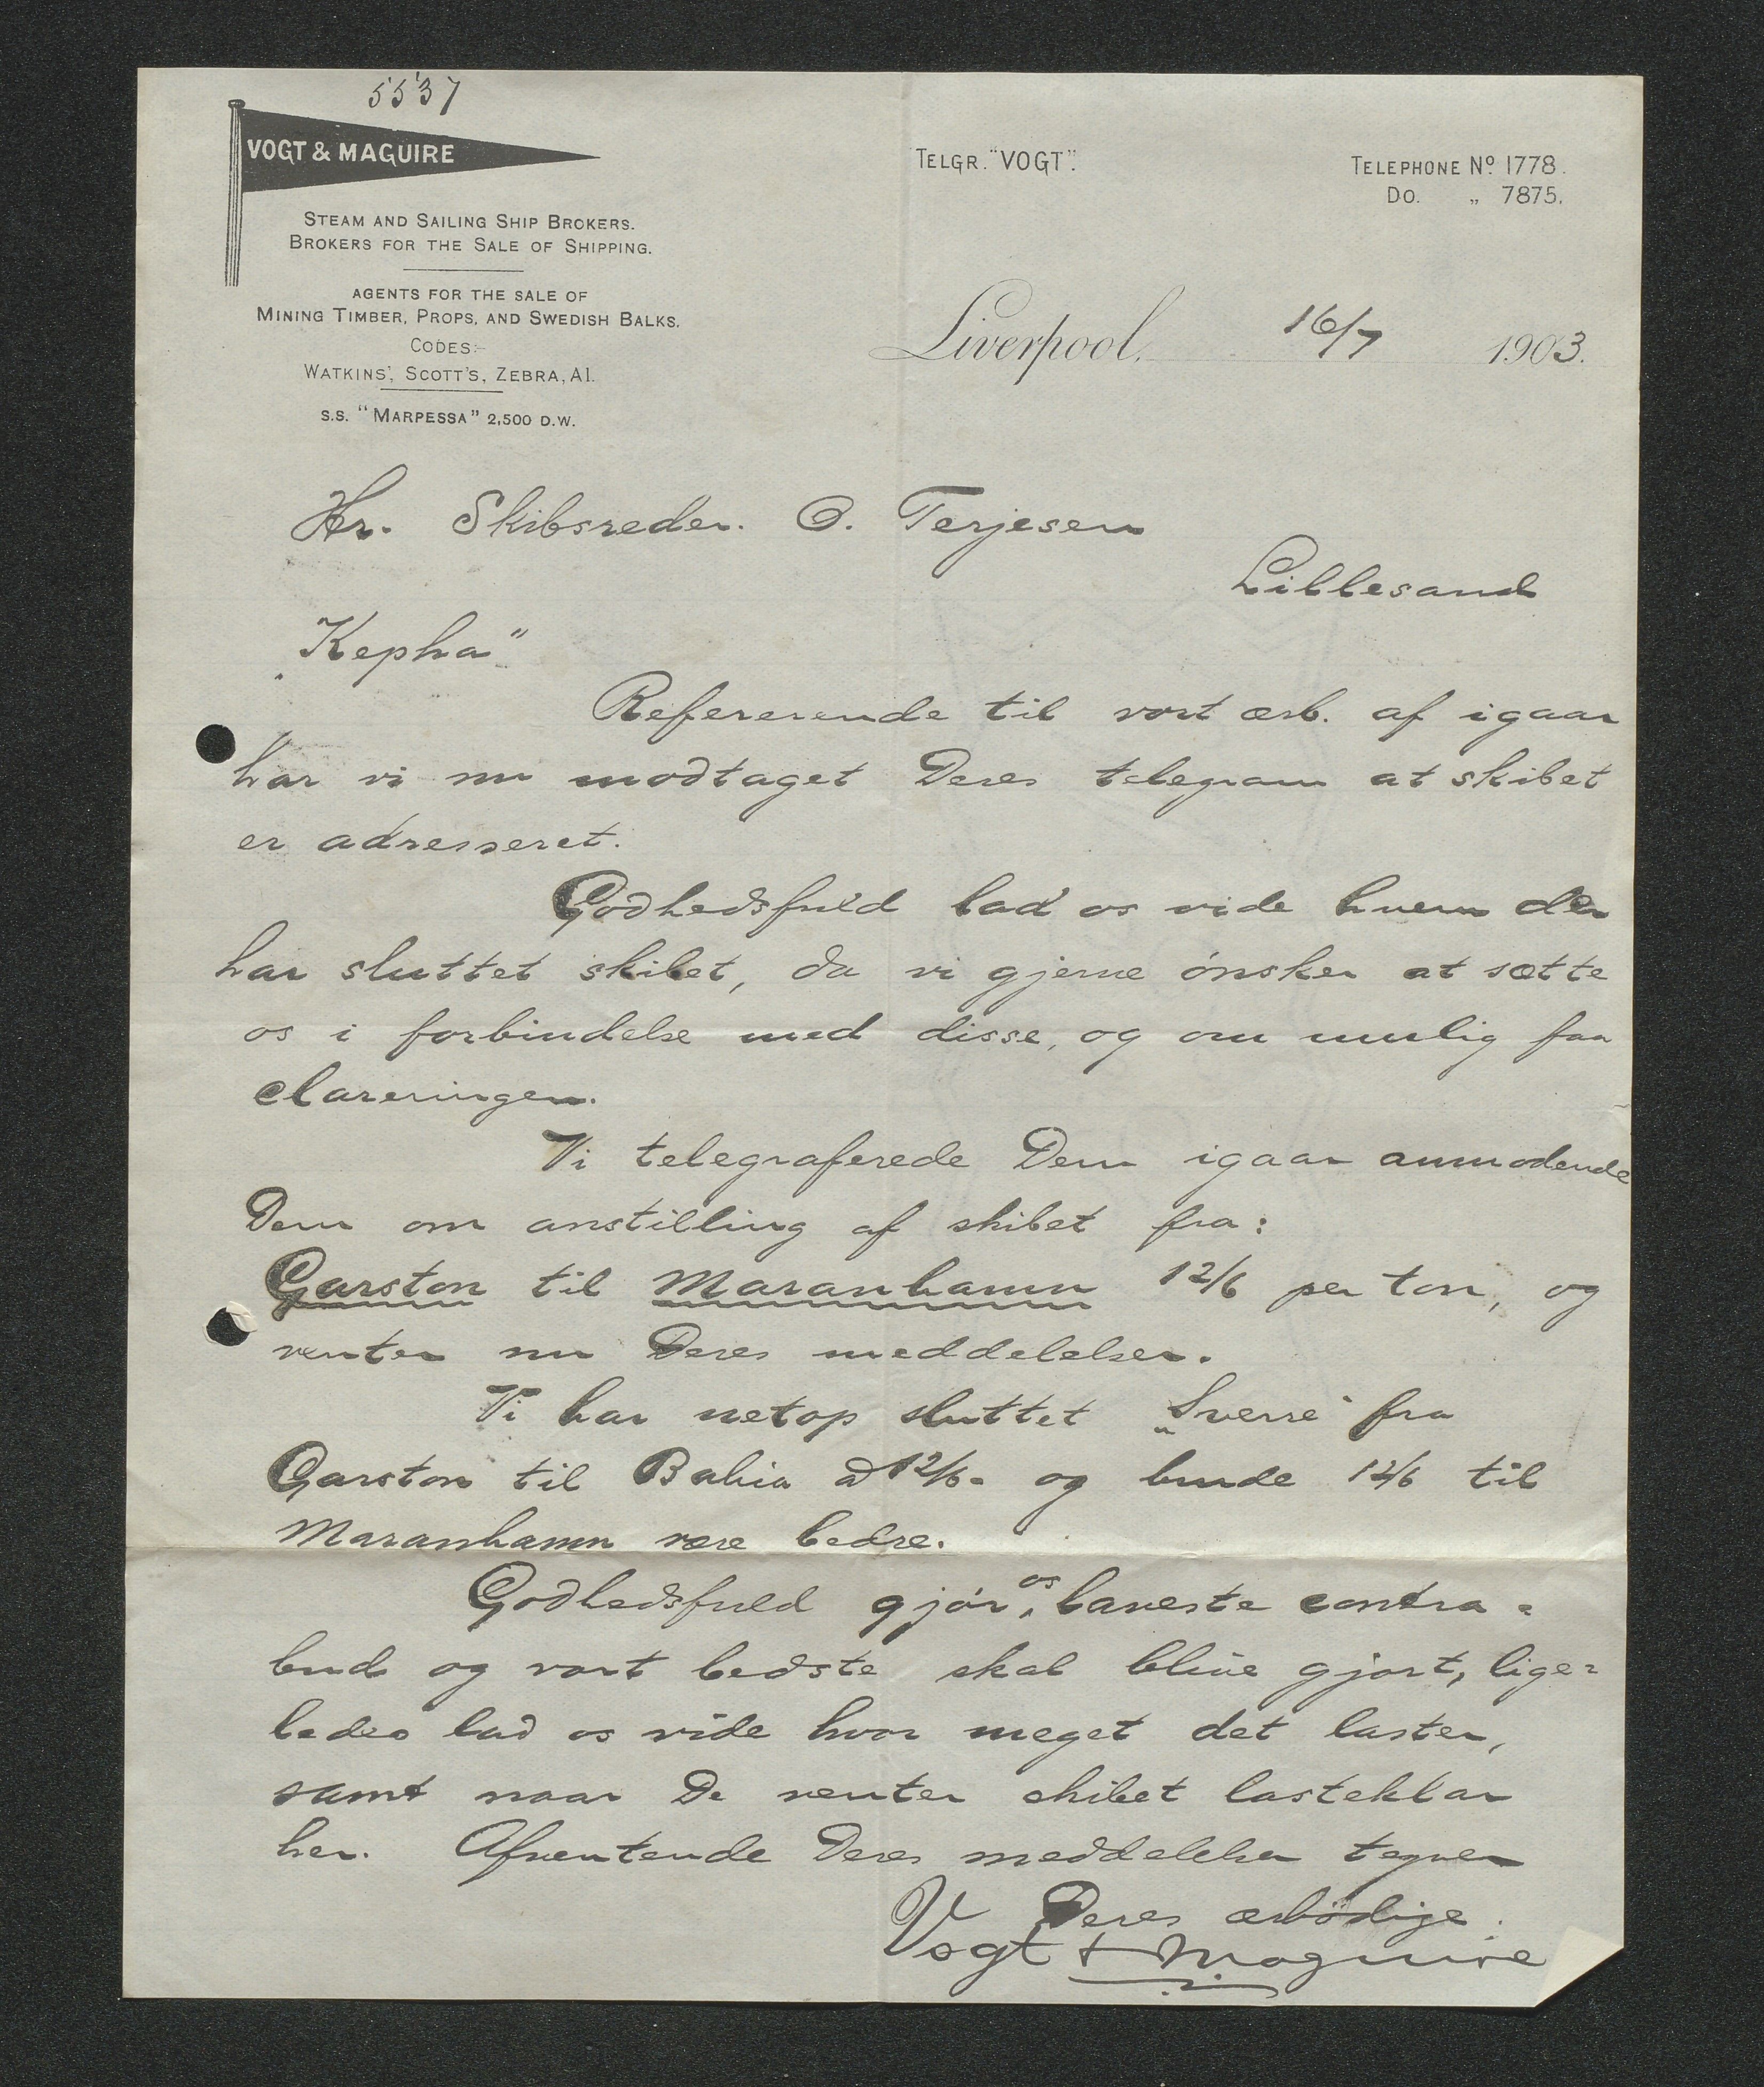 5537
VOGT & MAGUIRE
TELGR. "VOGT".
TELEPHONE No. 1778.
DO. „ 7875.
STEAM AND SAILING SHIP BROKERS.
BROKERS FOR THE SALE OF SHIPPING.
AGENTS FOR THE SALE OF
MINING TIMBER, PROPS, AND SWEDISH BALKS.
CODES:-
WATKINS', SCOTT'S, ZEBRA, A1.
S.S. "MARPESSA" 2,500 D.W.
Liverpool, 16/7 1903.
Hr. Skibsreder. O. Terjesen
Lillesand
„Kepha"
Refererende til vort ærb. af igaar
har vi nu modtaget Deres telegram at skibet
er adresseret.
Godhedsfuld lad os vide hvem der
har sluttet skibet, da vi gjerne ønsker at sætte
os i forbindelse med disse, og om mulig faa
clareringen.
Vi telegraferede Dem igaar anmodende
Dem om anstilling af skibet fra:
Garston til Maranhamn 12/6 per ton, og
venter nu Deres meddelelser.
Vi har netop sluttet „Sverre" fra
Garston til Bahia a 12/6- og burde 12/6 til
Maranhamn være bedre.
Godhedsfuld gjør os laveste contra =
bud og vort bedste skal blive gjort, lige=
ledes lad os vide hvor meget det laster,
samt naar De venter skibet lasteklar
her. Afventende Deres meddelelser tegner
Deres ærbødige.
Vogt & Maguire